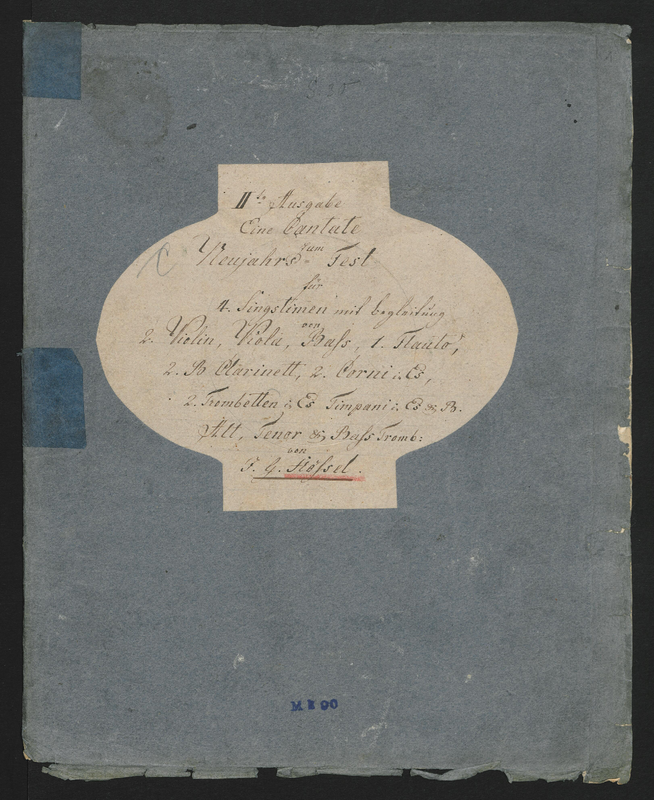 IIte Ausgabe
Eine Cantate
zum
Neujahrs- Fest
für
4. Singstimen mit begleitung
von
2. Violin, Viola, Bass, 1. Flauto,
2. B Clarinett, 2. Corni i. Es,
2. Trombetten i. Es Timpani i. Es & B.
Alt, Tenor & Bass Tromb:
von
F. G. Stössel.